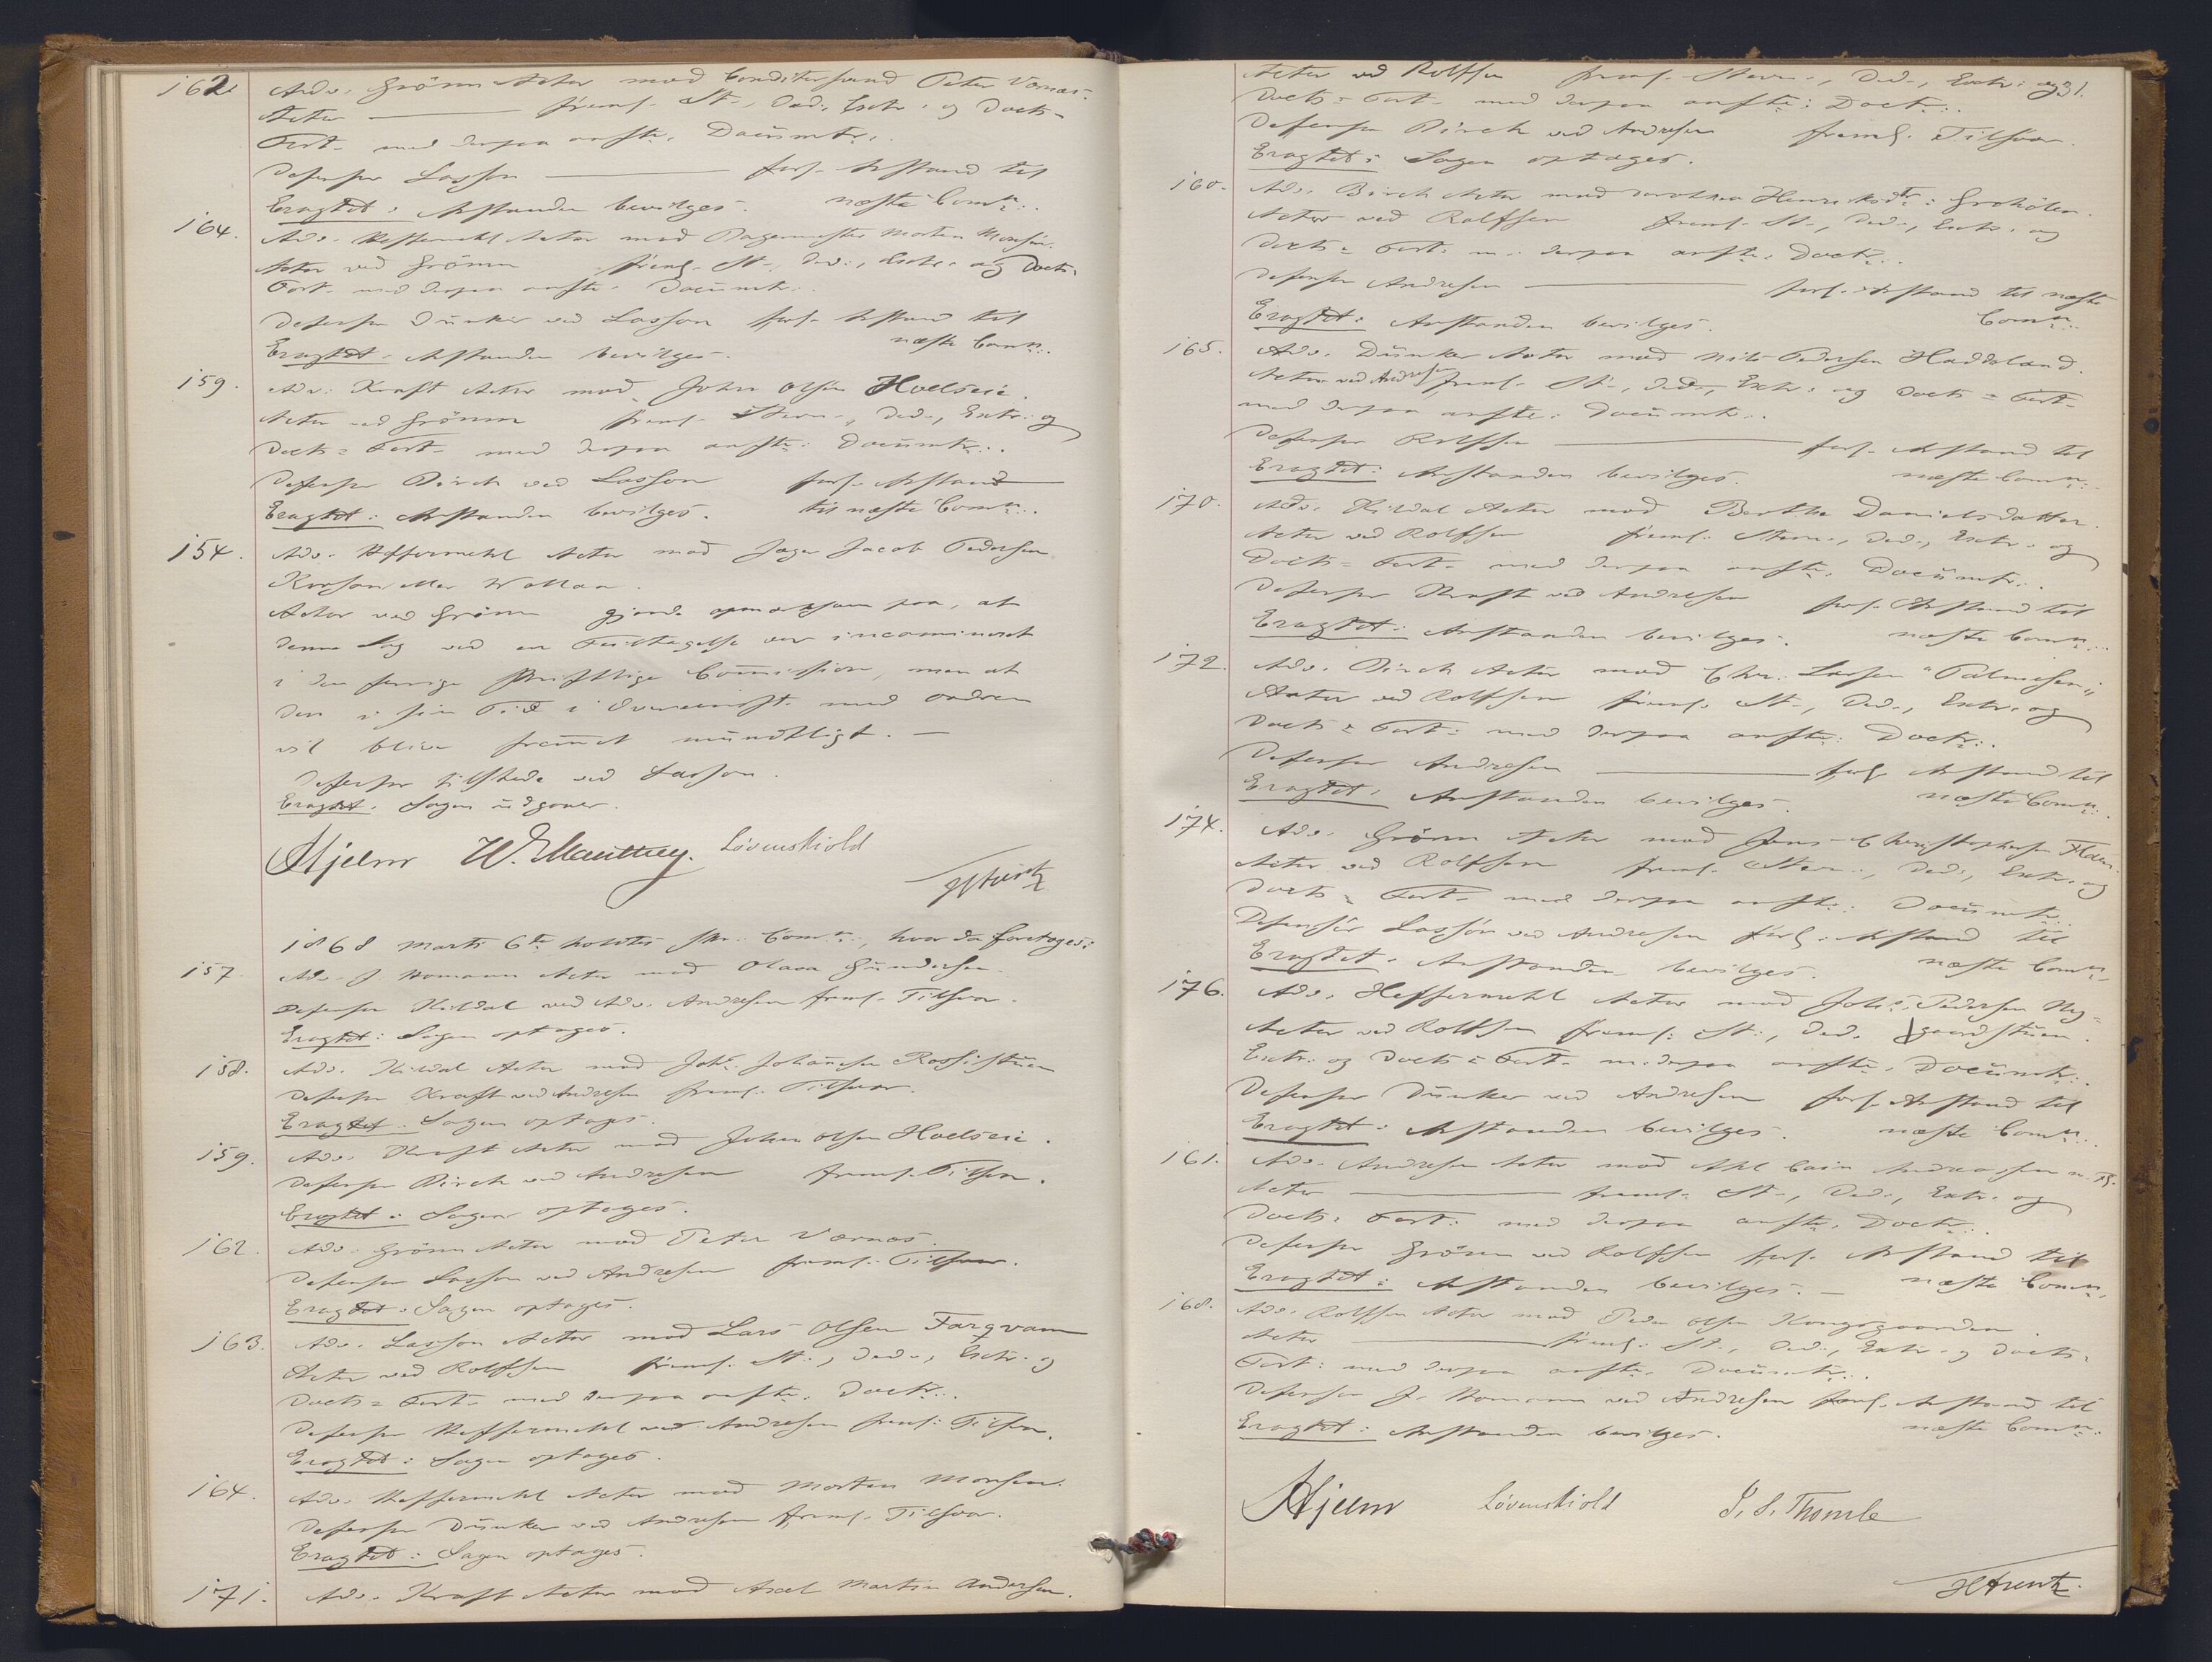 162. Adv. Grönn Actor mod Conditorsvend Peter Vornæs.
Actor — freml. St-, Ded-, Extr. og Docts-
Fort- med derpaa anfte. Documtr.
Defensor Lasson — forl. Anstand til
Eragtet: Anstanden bevilges. næste Commn.
164. Adv. Heffermehl Actor mod Bagermester Morten Monsen.
Actor ved Grönn freml. St-, Ded-, Extr. og Docts-
Fort- med derpaa anfte. Documtr.
Defensor Dünker ved Lasson forl. Anstand til
Eragtet: Anstanden bevilges. næste Commn.
159. Adv. Kraft Actor mod John Olsen Hoelseie.
Actor ved Grönn freml. Stevn-, Ded-, Extr. og
Docts- Fort- med derpaa anfte: Documtr.
Defensor Birch ved Lasson forl. Anstand
Eragtet: Anstanden bevilges. til næste Commn.
154. Adv. Heffermehl Actor mod Jæger Jacob Pedersen
eller
Actor ved Grönn gjorde opmærksom paa, at
denne Sag ved en Feiltagelse var incamineret
i den forrige skriftlige Commission, men at
den i sin Tid i Overeensst. med Ordren
vil blive fremmet mündtligt. —
Defensor tilstede ved Lasson.
Eragtet: Sagen üdgaaer.
Hjelm W. Manthey. Løvenskiold
H Arentz
1868 Marts 6te holdtes skr. Commn., hvor da foretoges:
157. Adv. J. Homann Actor mod Olava Gundersen.
Defensor Kildal ved Adv. Andresen freml. Tilsvar.
Eragtet: Sagen optages.
158. Adv. Kildal Actor mod Johs. Johannesen Rossistüen
Defensor Kraft ved Andresen freml. Tilsvar.
Eragtet: Sagen optages.
159. Adv. Kraft Actor mod John Olsen Hoelseie.
Defensor Birch ved Andresen freml. Tilsvar.
Eragtet: Sagen optages.
162. Adv. Grönn Actor mod Peter Vornæs.
Defensor Lasson ved Andresen freml. Tilsvar.
Eragtet: Sagen optages.
163. Adv. Lasson Actor mod Lars Olsen Fargvam
Actor ved Rolfsen freml. St-, Ded-, Extr. og
Docts- Fort- med derpaa anfte. Doctr.
Defensor Heffermehl ved Andresen freml. Tilsvar.
Eragtet: Sagen optages.
164. Adv. Heffermehl Actor mod Morten Monsen.
Defensor Dünker ved Andresen freml. Tilsvar.
Eragtet: Sagen optages.
171. Adv. Kraft Actor mod Axel Martin Andersen.
31.
Actor ved Rolfsen freml. Stevn-, Ded-, Extr. og
Docts- Fort- med derpaa anfte: Doctr.
Defensor Birch ved Andresen freml. Tilsvar.
Eragtet: Sagen optages.
160. Adv. Birch Actor mod Dorothea Henriksdtr: Groholen.
Actor ved Rolfsen freml. St-, Ded-, Extr. og
Docts- Fort- m. derpaa anfte. Doctr.
Defensor Andresen — forl. Anstand til næste
Eragtet: Anstanden bevilges. Commn.
165. Adv. Dünker Actor mod Nils Pedersen Haddeland.
Actor ved Andresen freml. St-, Ded-, Extr. og Docts- Fort-
med derpaa anfte. Documtr.
Defensor Rolfsen — forl. Anstand til
Eragtet: Anstanden bevilges. næste Commn.
170. Adv. Kildal Actor mod Berthe Danielsdatter.
Actor ved Rolfsen freml. Stevn-, Ded-, Extr. og
Docts- Fort- med derpaa anfte. Documtr.
Defensor Kraft ved Andresen forl. Anstand til
Eragtet: Anstanden bevilges. næste Commn.
172. Adv. Birch Actor mod Chr. Larsen "Palmesen"
Actor ved Rolfsen freml. St-, Ded-, Extr. og
Docts- Fort- med derpaa anfte: Doctr.
Defensor Andresen — forl. Anstand til
Eragtet: Anstanden bevilges. næste Commn.
174. Adv. Grönn Actor mod Jens Christophersen
Actor ved Rolfsen freml. Stevn-, Ded-, Extr. og
Docts- Fort- med derpaa anfte: Documtr.
Defensor Lasson ved Andresen forl. Anstand til
Eragtet: Anstanden bevilges. næste Commn.
176. Adv. Heffermehl Actor mod Johs. Pedersen Ny-
Actor ved Rolfsen freml. St-, Ded. gaardstüen.
Extr. og Docts- Fort- m. derpaa anfte. Documtr.
Defensor Dünker ved Andresen forl. Anstand til
Eragtet: Anstanden bevilges. næste Commn.
161. Adv. Andresen Actor mod Andreassen m. Fl.
Actor — freml. St-, Ded-, Extr. og
Docts- Fort- med derpaa anfte. Doctr.
Defensor Grönn ved Rolfsen forl. Anstand til
Eragtet: Anstanden bevilges. — næste Commn.
168. Adv. Rolfsen Actor mod Peder Olsen Kongsgaarden.
Actor — freml. St-, Ded-, Extr. og Docts-
Fort- med derpaa anfte. Documtr.
Defensor J. Homann ved Andresen forl. Anstand til
Eragtet: Anstanden bevilges. næste Commn.
Hjelm Løvenskiold J. S. Thomle
H Arentz